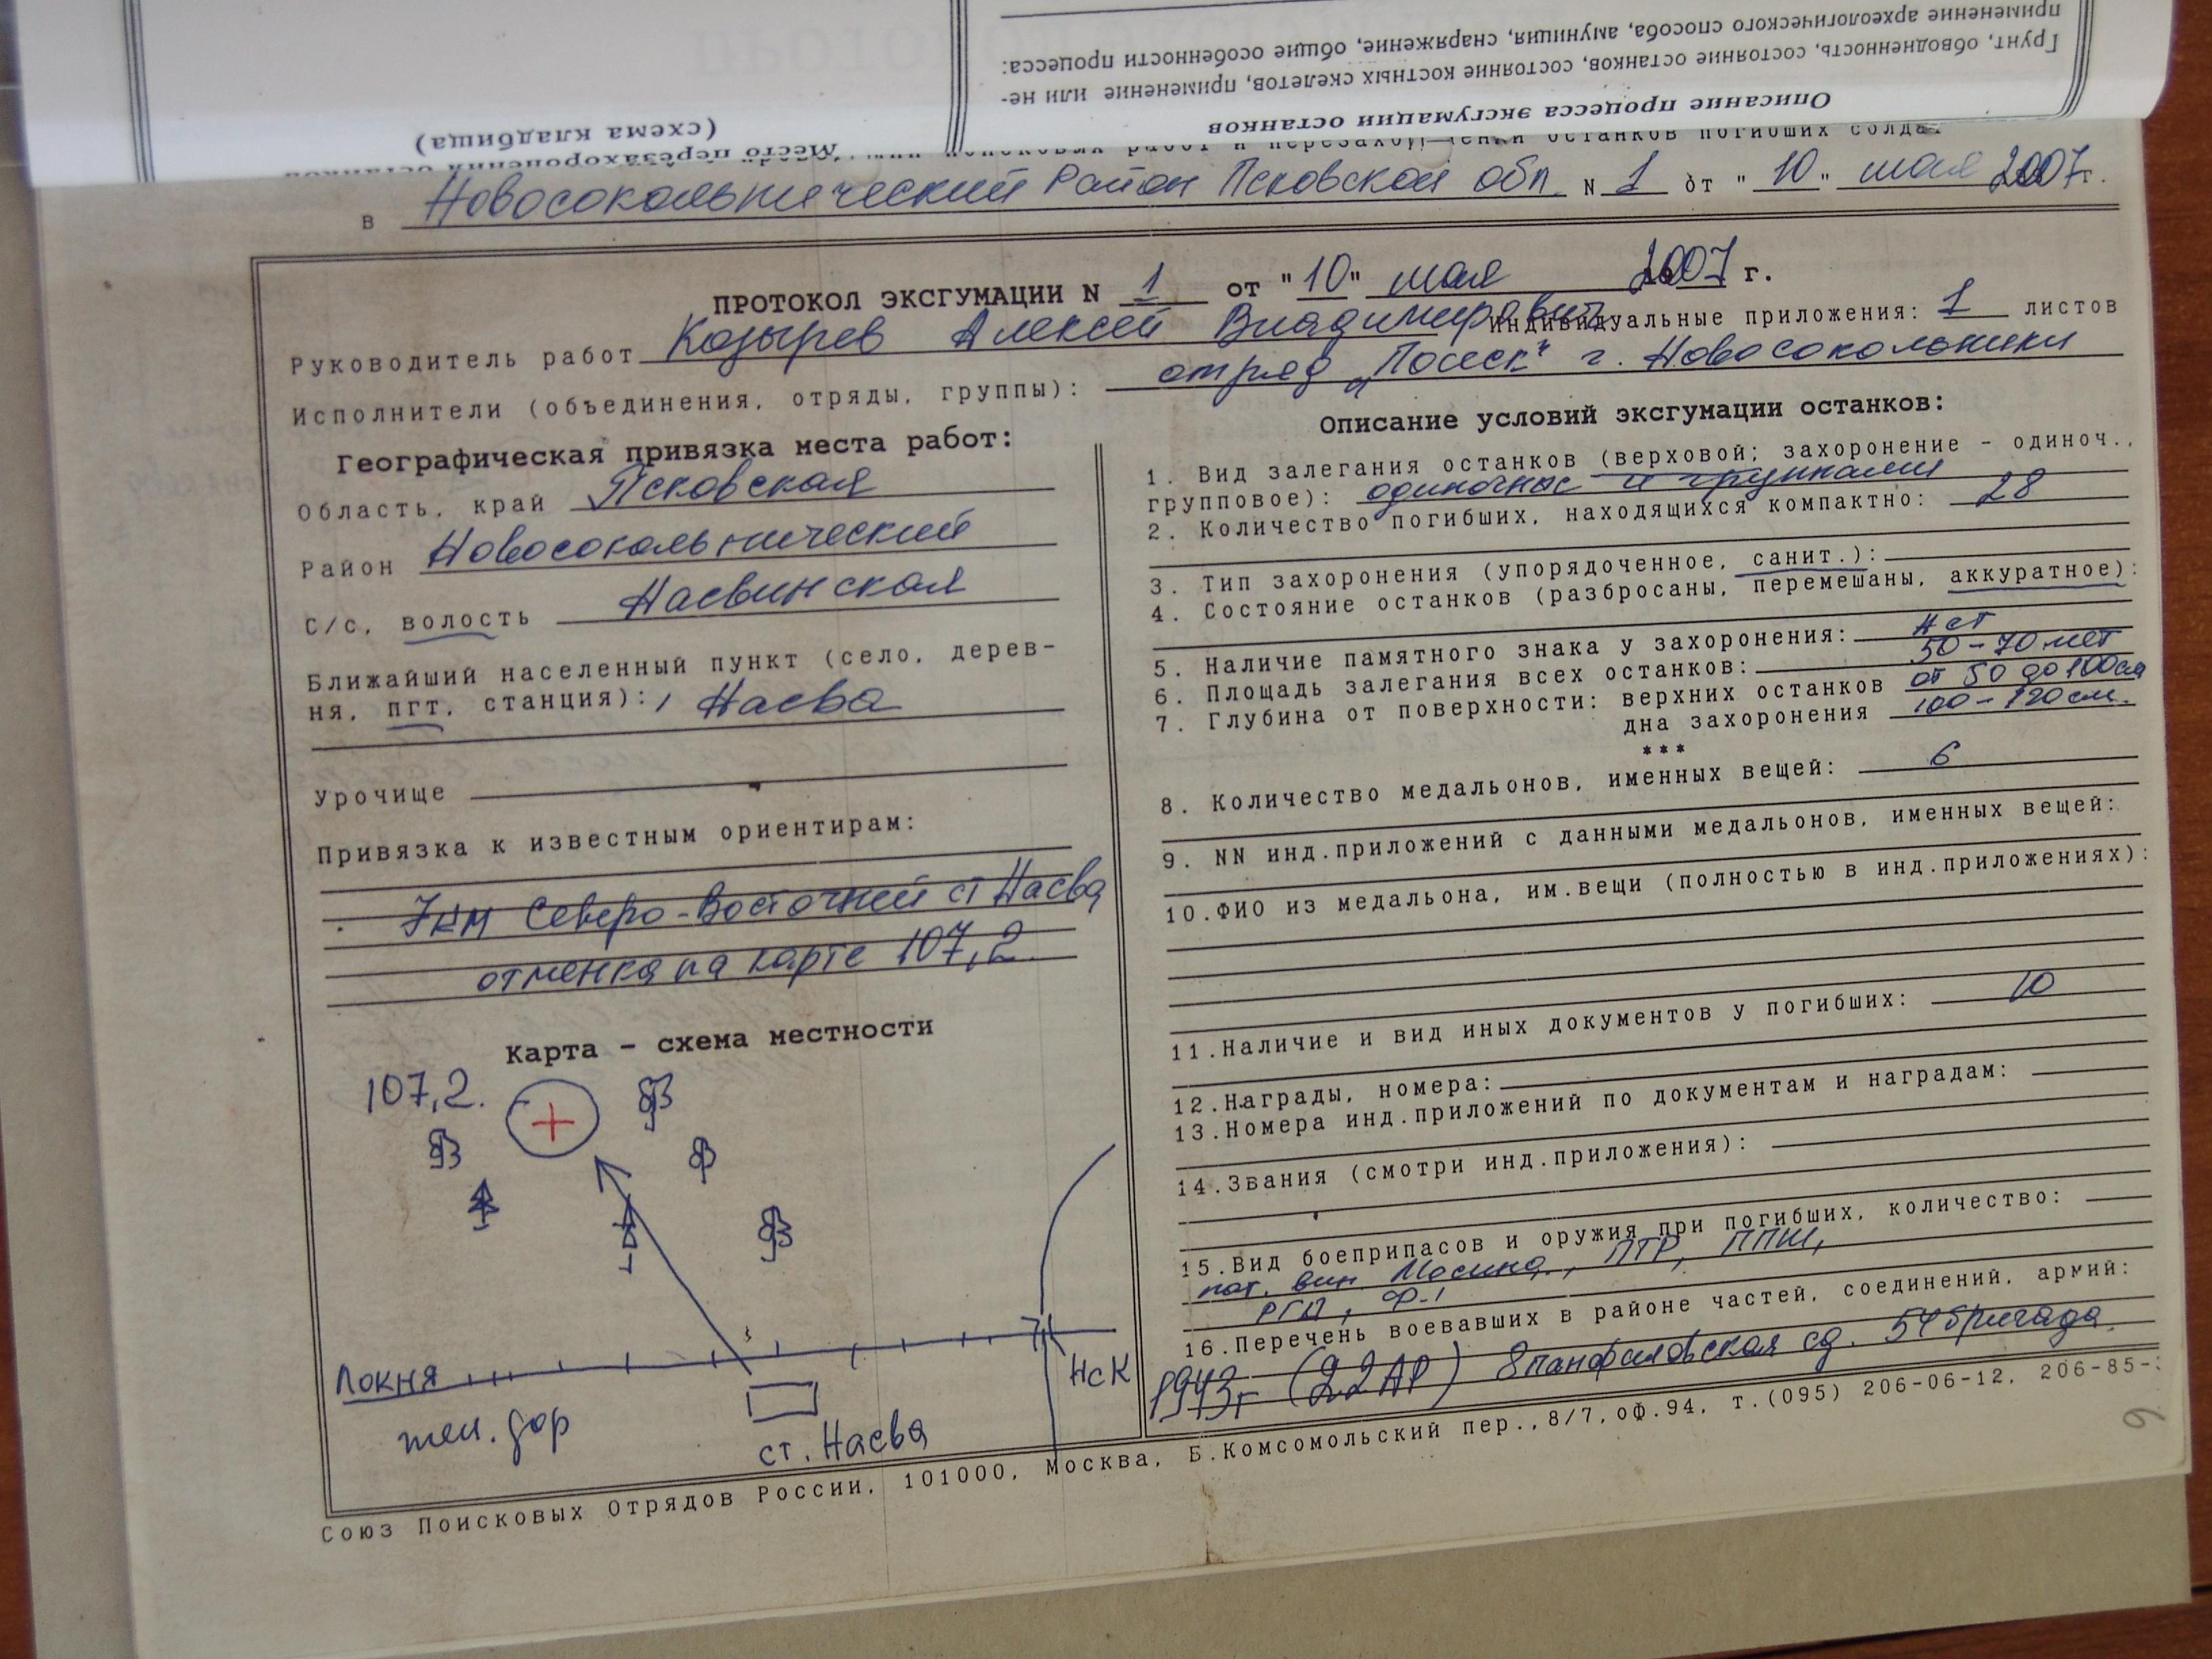 применение археологического способа, амуниция, снаряжение, общие особенности процесса:
Грунт, обводненность, состояние останков, состояние костных скелетов, применение или не-
Описание процесса эксгумации останков
(схема кладбища)
Место перезахоронения останков
работ и перезахоронения останков погибших солдат
в Новосокольнический Район Псковской обл N 1 от "10" мая 2007г.
ПРОТОКОЛ ЭКСГУМАЦИИ N 1 от "10" мая 2007 г.
Индивидуальные приложения: 1 листов
Руководитель работ Козырев Алексей Владимирович
Исполнители (объединения, отряды, группы): отряд "Поиск" г. Новосокольники
Географическая привязка места работ:
Область, край Псковская
Район Новосокольнический
С/с, волость Насвинская
Ближайший населенный пункт (село, дерев-
ня, пгт, станция): Насва
Урочище
Привязка к известным ориентирам:
7км Северо-Восточней ст Насва
отменка на карте 107,2.
Карта - схема местности
107,2.
Локня
жел. дор
ст. Насва
НсК
Описание условий эксгумации останков:
1. Вид залегания останков (верховой; захоронение - одиноч.,
групповое): одиночное и группами
2. Количество погибших, находящихся компактно: 28
3. Тип захоронения (упорядоченное, санит.):
4. Состояние останков (разбросаны, перемешаны, аккуратное):
5. Наличие памятного знака у захоронения: Нет
6. Площадь залегания всех останков: 50-70 мет
7. Глубина от поверхности: верхних останков от 50 до 100см
дна захоронения 100-120см.
***
8. Количество медальонов, именных вещей: 6
9. NN инд.приложений с данными медальонов, именных вещей:
10.ФИО из медальона, им.вещи (полностью в инд.приложениях):
11.Наличие и вид иных документов у погибших: 10
12.Награды, номера:
13.Номера инд.приложений по документам и наградам:
14.Звания (смотри инд.приложения):
15.Вид боеприпасов и оружия при погибших, количество:
пат. вин Мосина, ПТР, ППШ,
РГД, Ф-1
16.Перечень воевавших в районе частей, соединений, армий:
1943г (22АР) 8 панфиловская сд. 54 бригада.
Союз Поисковых Отрядов России, 101000, Москва, Б.Комсомольский пер.,8/7,оф.94, т.(095) 206-06-12, 206-85-